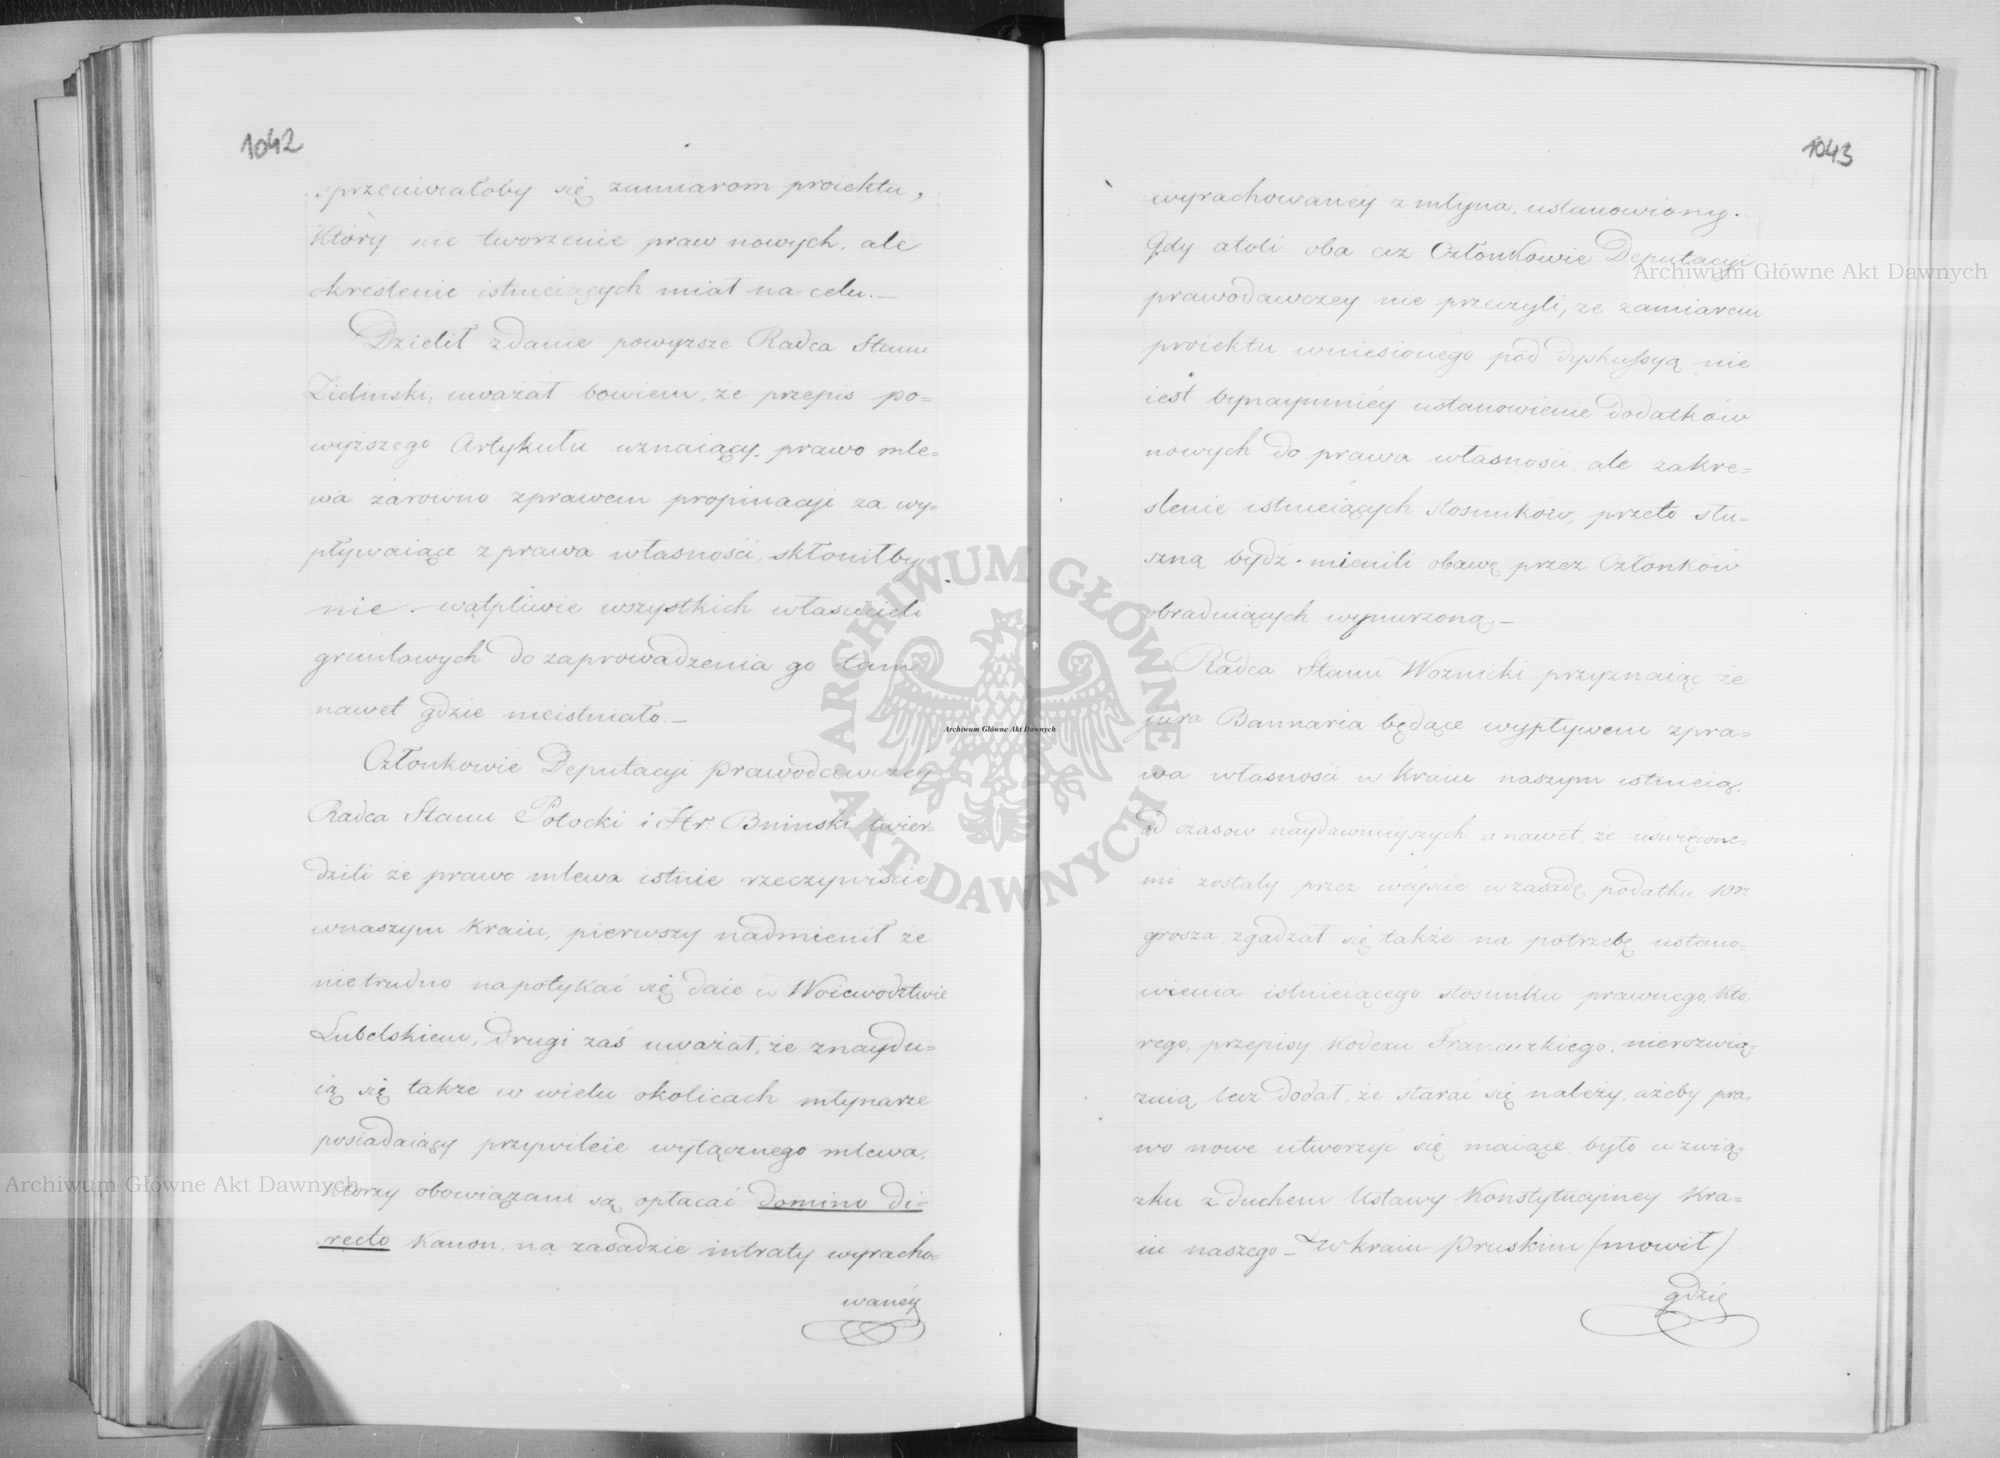 1042
sprzeciwiałoby się zamiarom proiektu,
który nie tworzenie praw nowych, ale
okreslenie istnieiących miał na celu.—
Dzielił zdanie powyzsze Radca Stanu
Zielinski, uważał bowiem, że przepis po=
wyższego Artykułu uznaiący prawo mle=
wa zarówno z prawem propinacyi za wy=
pływaiące z prawa własności, skłoniłby
nie wątpliwie wszystkich właścicieli
gruntowych do zaprowadzenia go tam
nawet gdzie nieistniało.—
Członkowie Deputacyi prawodawczéy
Radca Stanu Potocki i Hr. Bninski twier=
dzili że prawo mlewa istnie rzeczywiście
w naszym kraiu, pierwszy nadmienił że
nie trudno napotykać się daie w Woiewodztwie
Lubelskiem, drugi zaś uważał, że znaydu=
ią się także w wielu okolicach młynarze
posiadaiący przywileie wyłącznego mlewa,
którzy obowiązani są opłacać domino di=
recto kanon, na zasadzie intraty wyracho=
wanéy
1043
wyrachowanéy z młyna, ustanowiony.
Gdy atoli oba ciż Członkowie Deputacyi
prawodawczey nie przeczyli, ze zamiarem
proiektu wniesionego pod dyskussyą nie
iest bynaymniéy ustanowienie dodatków
nowych do prawa własności, ale zakre=
slenie istnieiących stosunków, przeto słu=
szną bydź mienili obawę przez Członków
obraduiących wynurzoną—
Radca Stanu Woznicki przyznaiąc że
jura Bannaria będące wypływem z pra=
wa własności w kraiu naszym istnieią,
od czasow naydawnieyszych a nawet, ze uswięcone=
mi zostały przez weyście w zasadę podatku 10go
grosza, zgadzał się także na potrzebę ustano=
wienia istnieiącego stosunku prawnego, któ
rego, przepisy Kodexu Francuzkiego, nierozwią=
zuią lecz dodał, że starać się należy, ażeby pra=
wo nowe utworzyć się maiące było w zwią=
zku z duchem Ustawy Konstytucyiney Kra=
iu naszego— w kraiu Pruskim (mowił)
gdzie
Archiwum Główne Akt Dawnych
Archiwum Główne Akt Dawnych
Archiwum Główne Akt Dawnych
ARCHIWUM GŁÓWNE · AKT DAWNYCH ·